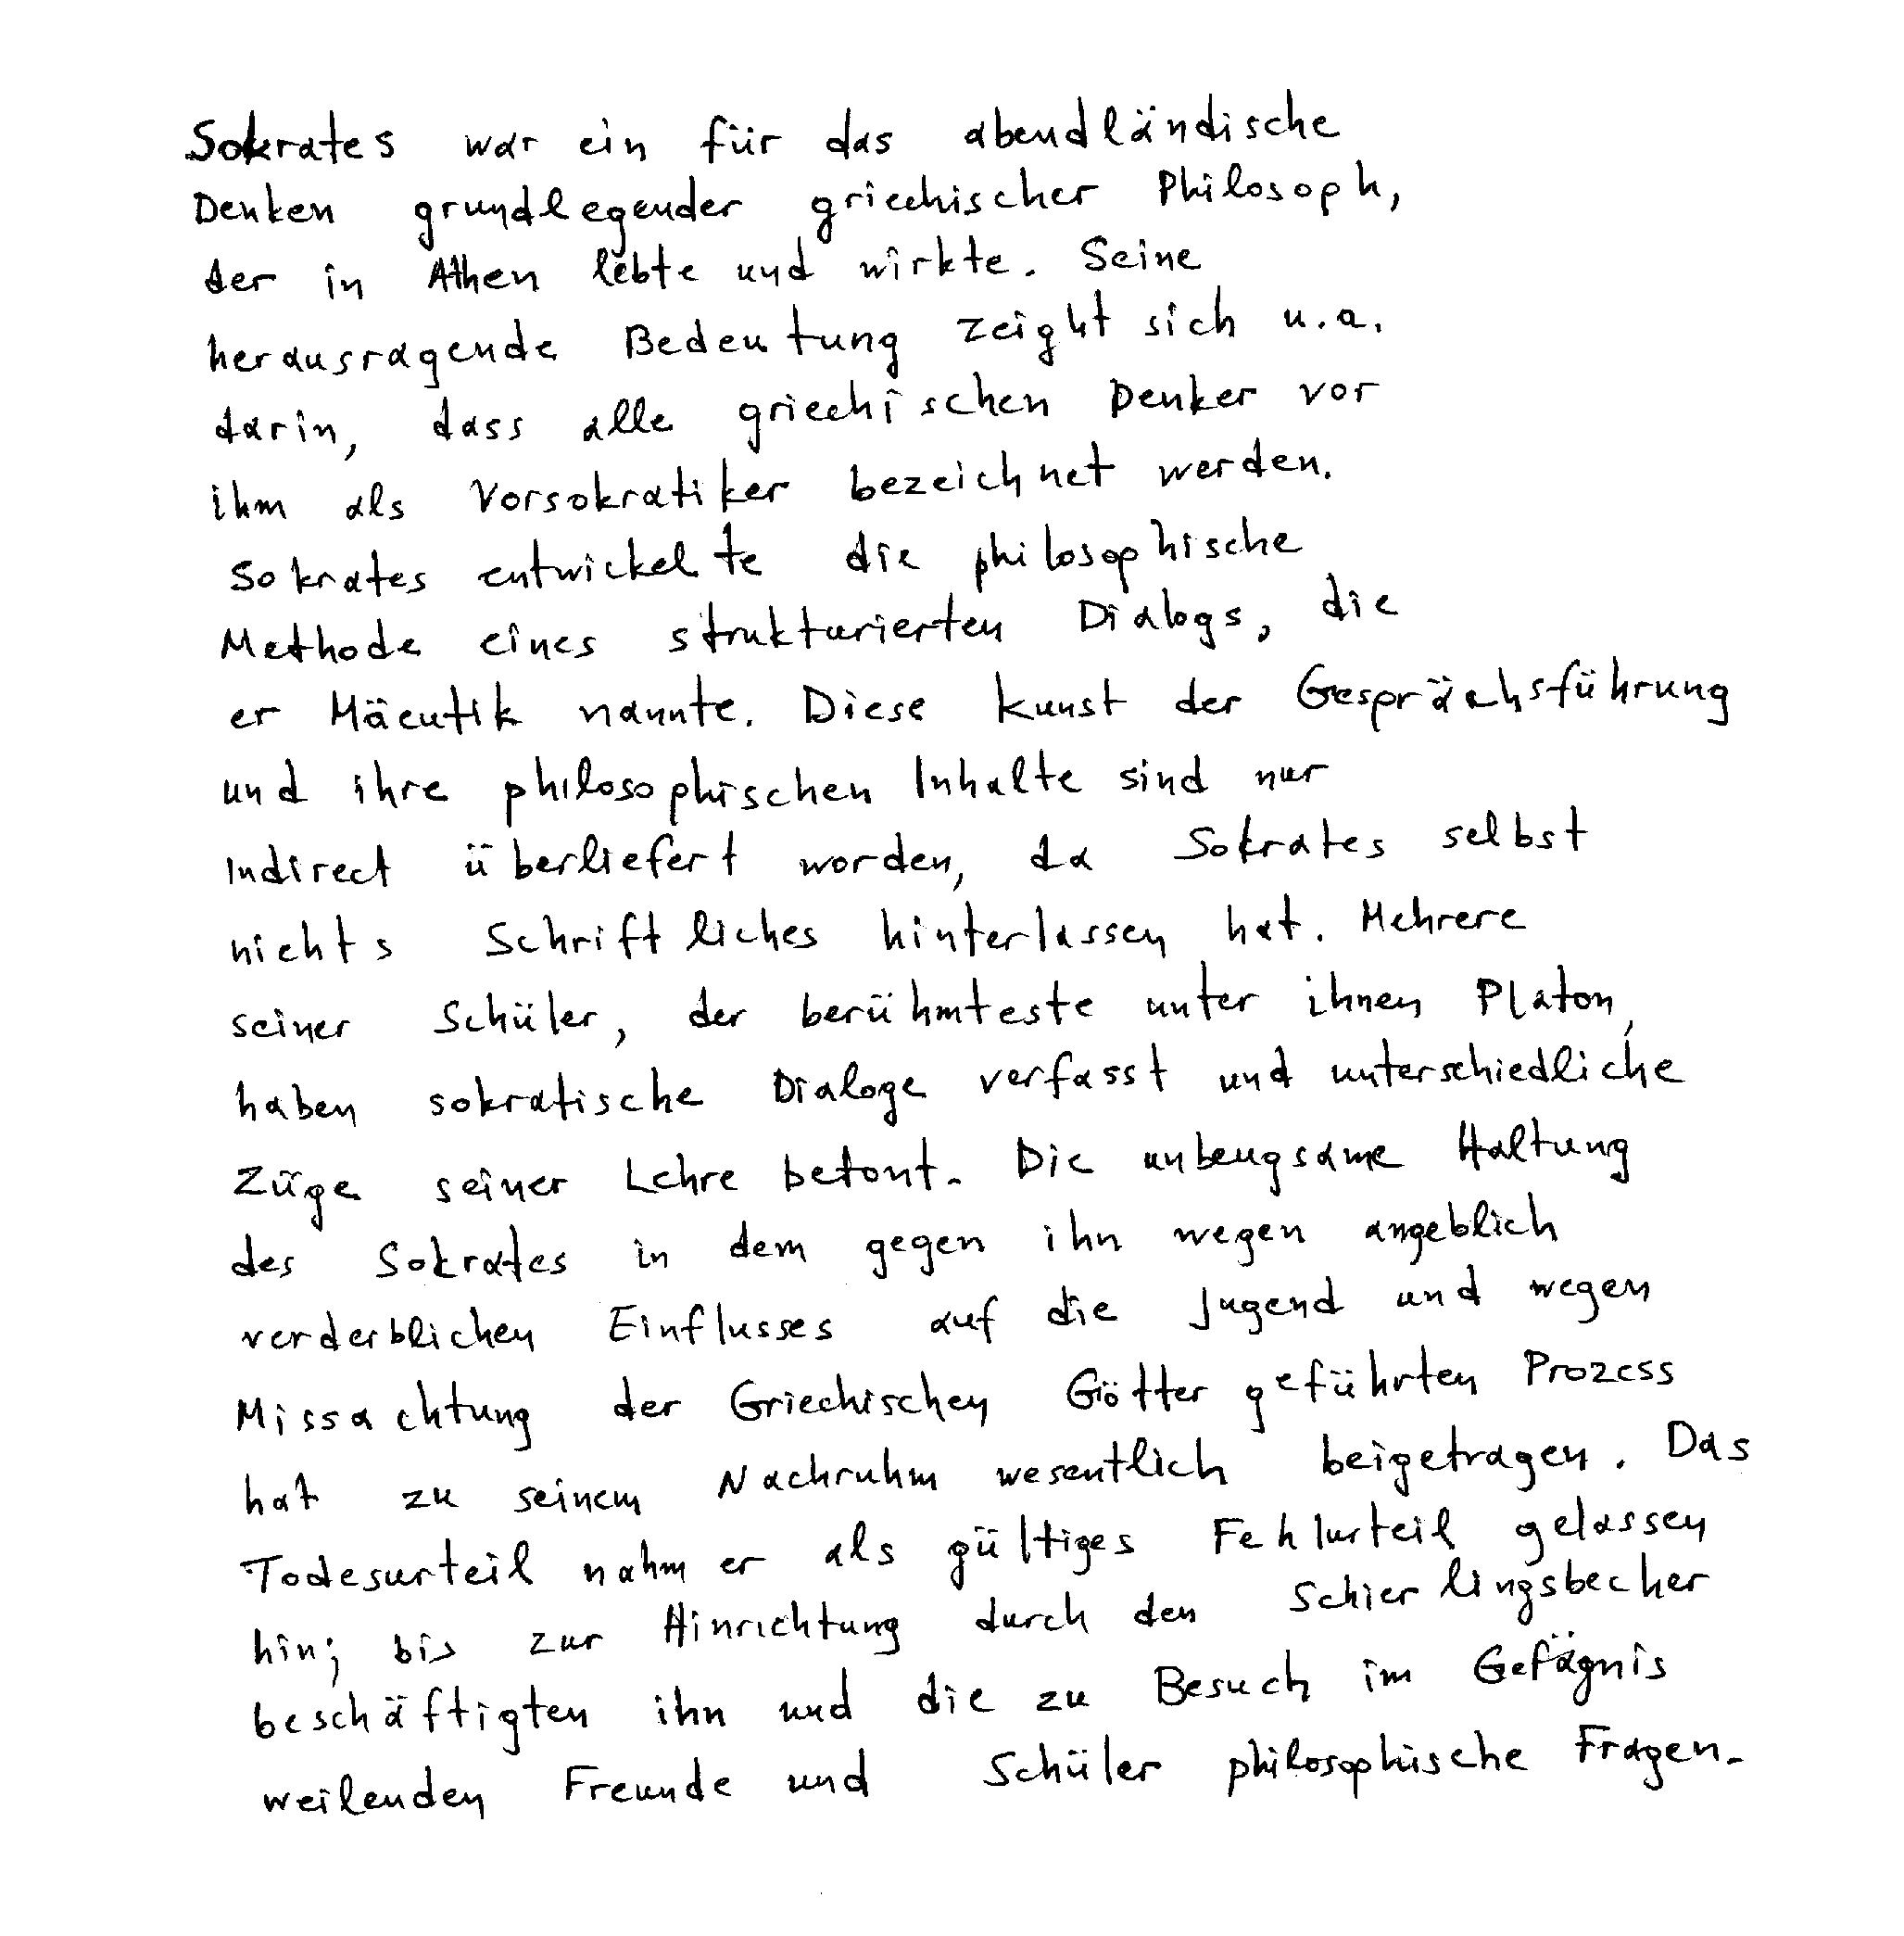 Sokrates war ein für das abendländische
Denken grundlegender griechischer Philosoph,
der in Athen lebte und wirkte. Seine
herausragende Bedeutung zeight sich u.a.
darin, dass alle griechischen Denker vor
ihm als Vorsokratiker bezeichnet werden.
Sokrates entwickelte die philosophische
Methode eines strukturierten Dialogs, die
er Mäeutik nannte. Diese Kunst der Gesprächsführung
und ihre philosophischen Inhalte sind nur
Indirect überliefert worden, da Sokrates selbst
nichts Schriftliches hinterlassen hat. Mehrere
seiner Schüler, der berühmteste unter ihnen Platon,
haben sokratische Dialoge verfasst und unterschiedliche
Züge seiner Lehre betont. Die unbeugsame Haltung
des Sokrates in dem gegen ihn wegen angeblich
verderblichen Einflusses auf die Jugend und wegen
Missachtung der Griechischen Götter geführten Prozess
hat zu seinem Nachruhm wesentlich beigetragen. Das
Todesurteil nahm er als gültiges Fehlurteil gelassen
hin; bis zur Hinrichtung durch den Schierlingsbecher
beschäftigten ihn und die zu Besuch im Gefägnis
weilenden Freunde und Schüler philosophische Fragen.